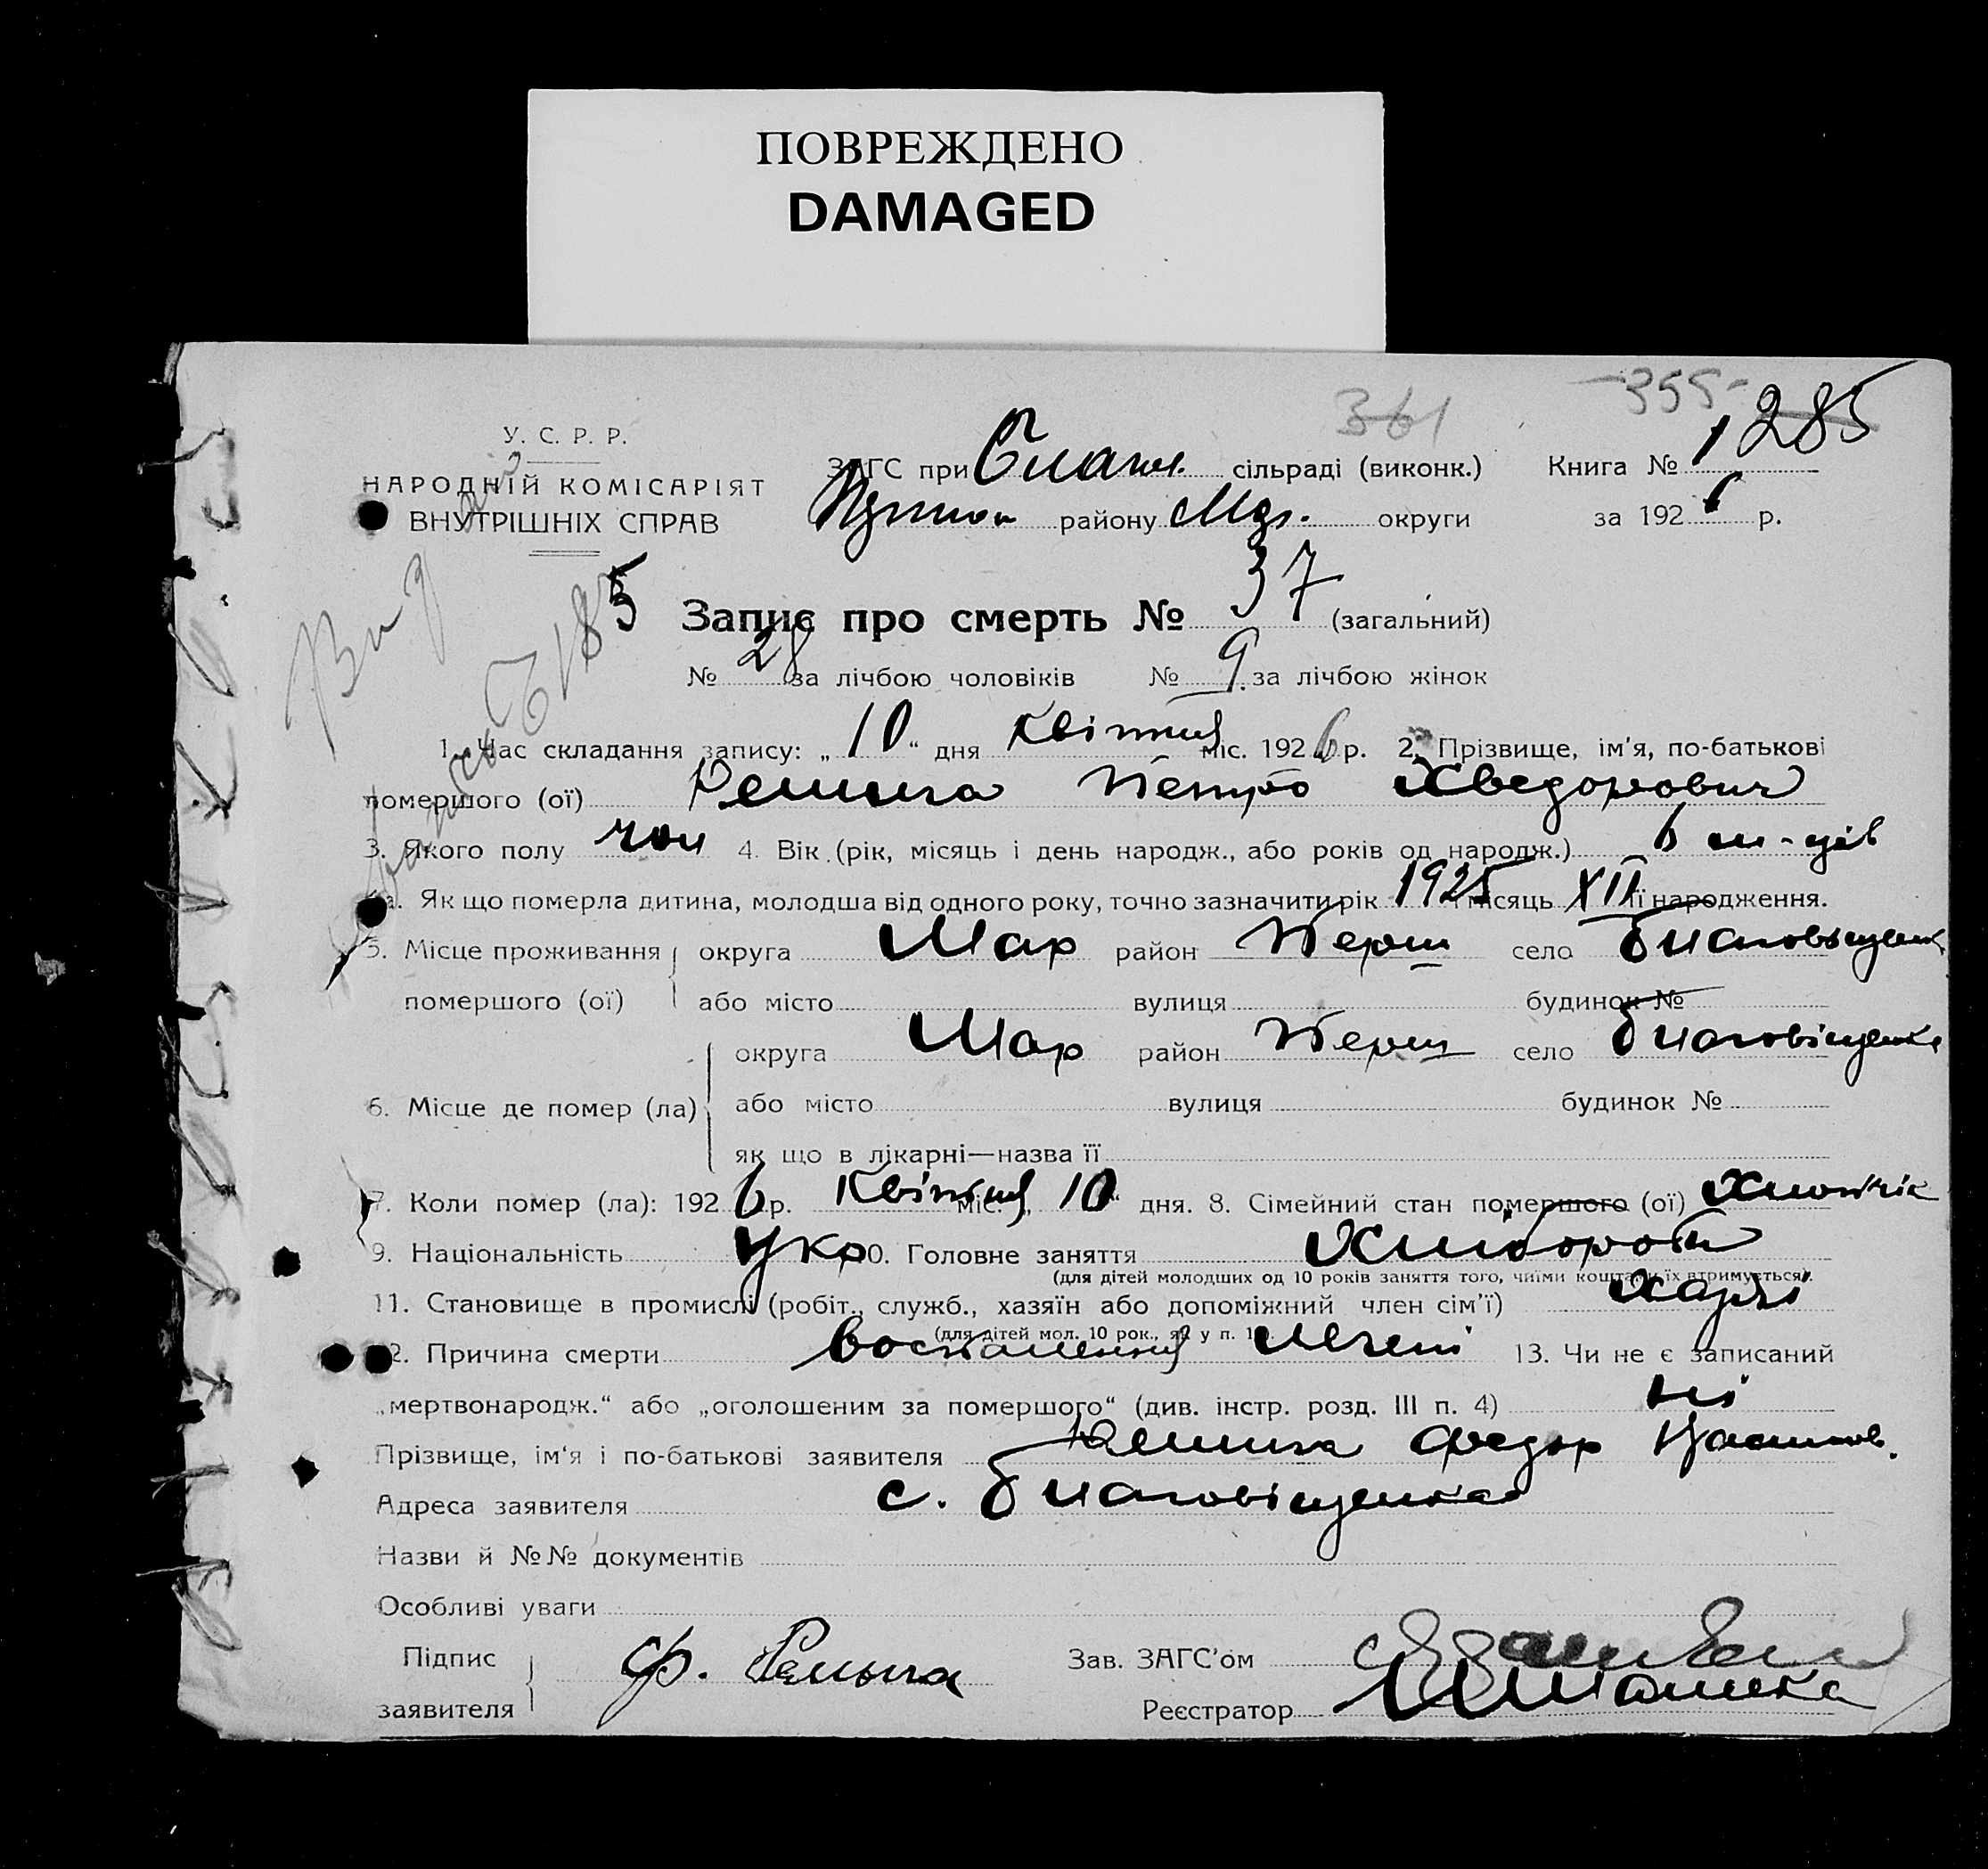 ПОВРЕЖДЕНО
DAMAGED
361 -355- 285
У. С. Р. Р.
НАРОДНІЙ КОМІСАРІЯТ
ВНУТРІШНІХ СПРАВ
ЗАГС при сільраді (виконк.) Книга № 1
району округи за 1926 р.
Запис про смерть № 37 (загальний)
№ 28 за лічбою чоловіків № 9 за лічбою жінок
1. Час складання запису: „10“ дня Квітня міс. 1926 р. 2. Прізвище, ім'я, по-батькові
помершого (ої) Петро Хведорович
3. Якого полу чол 4. Вік (рік, місяць і день народж., або років од народж.) 6 м-ців
4а. Як що померла дитина, молодша від одного року, точно зазначити рік 1925 і місяць XII її народження.
5. Місце проживання округа Мар район Перш село Благовіщенк
помершого (ої) або місто вулиця будинок №
округа Мар район Перш село Благовіщенка
6. Місце де помер (ла) або місто вулиця будинок №
як що в лікарні—назва її
7. Коли помер (ла): 1926 р. Квітня міс. „10“ дня. 8. Сімейний стан помершого (ої) Хлопчік
9. Національність Укр 10. Головне заняття Хлібороб
(для дітей молодших од 10 років заняття того, чиїми коштами їх втримується).
11. Становище в промислі (робіт., служб., хазяїн або допоміжний член сім'ї)
(для дітей мол. 10 рок., як у п. 10).
12. Причина смерти воспалення 13. Чи не є записаний
„мертвонародж.“ або „оголошеним за помершого“ (див. інстр. розд. III п. 4) ні
Прізвище, ім'я і по-батькові заявителя Федор
Адреса заявителя с. Благовіщенка
Назви й №№ документів
Особливі уваги
Підпис Ф. Зав. ЗАГС'ом
заявителя Реєстратор